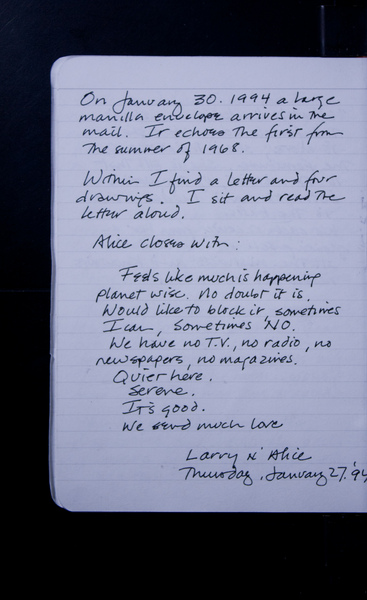 On January 30. 1994 a large
manilla envelope arrives in the
mail. It echoes the first from
the summer of 1968.
Within I find a letter and four
drawings. I sit and read the
letter aloud.
Alice closes with:
Feels like much is happening
planet wise. No doubt it is.
Would like to block it, sometimes
I can, sometimes NO.
We have no T.V., no radio, no
newspapers, no magazines.
Quiet here.
Serene.
It's good.
We send much love
Larry N' Alice
Thursday, January 27. '94